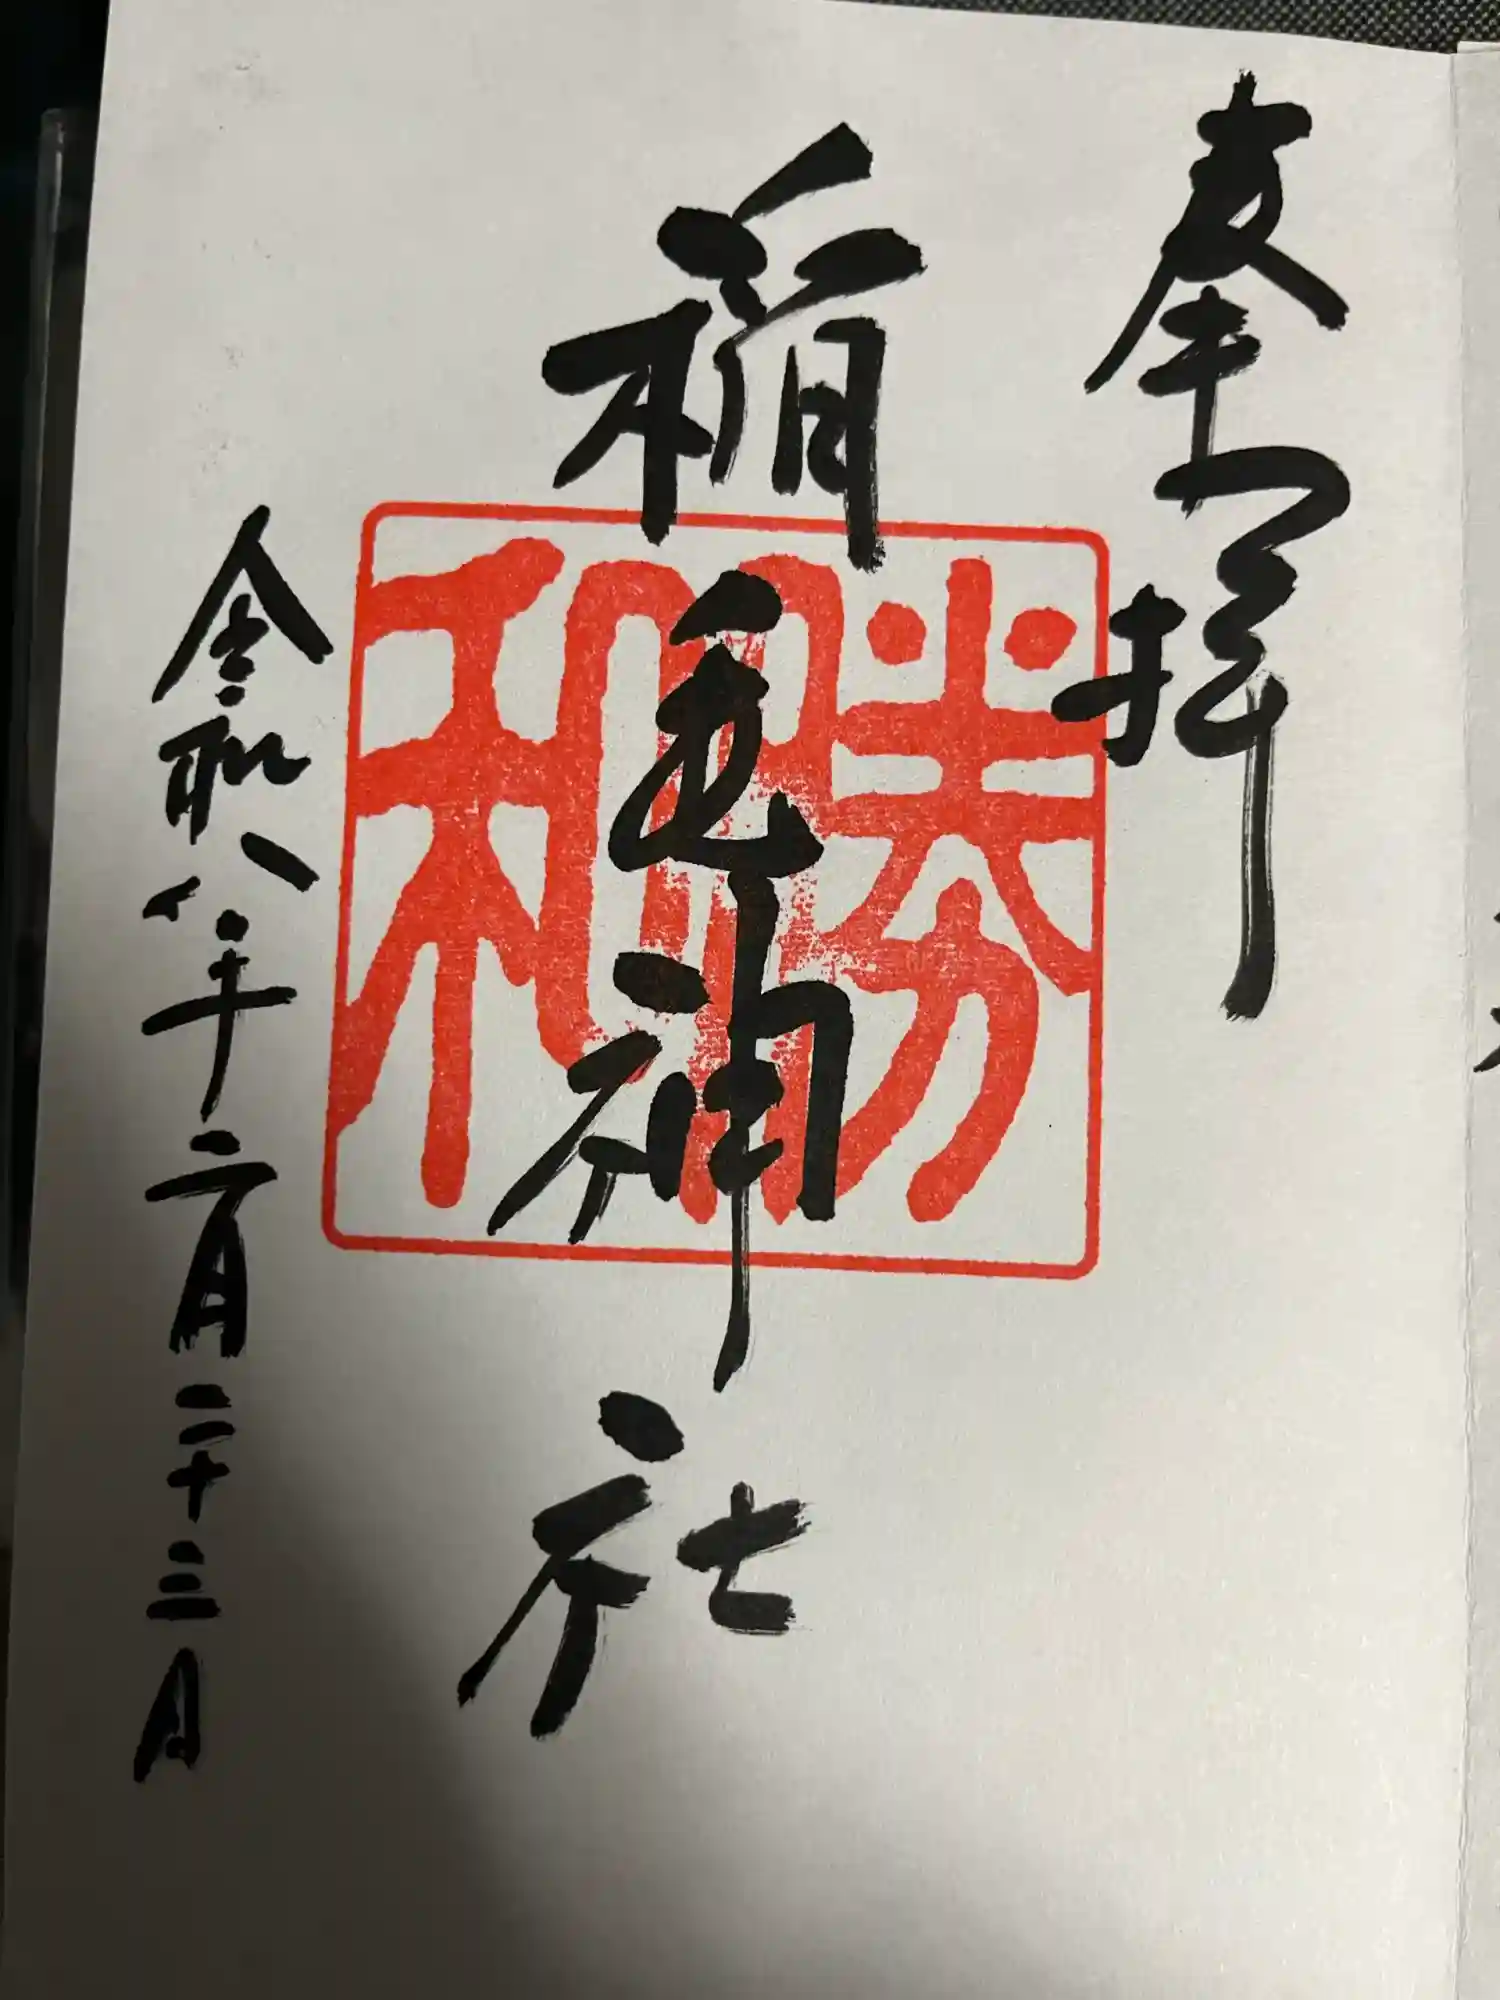 奉拝
稲毛神社
勝和
令和八年二月二十三日